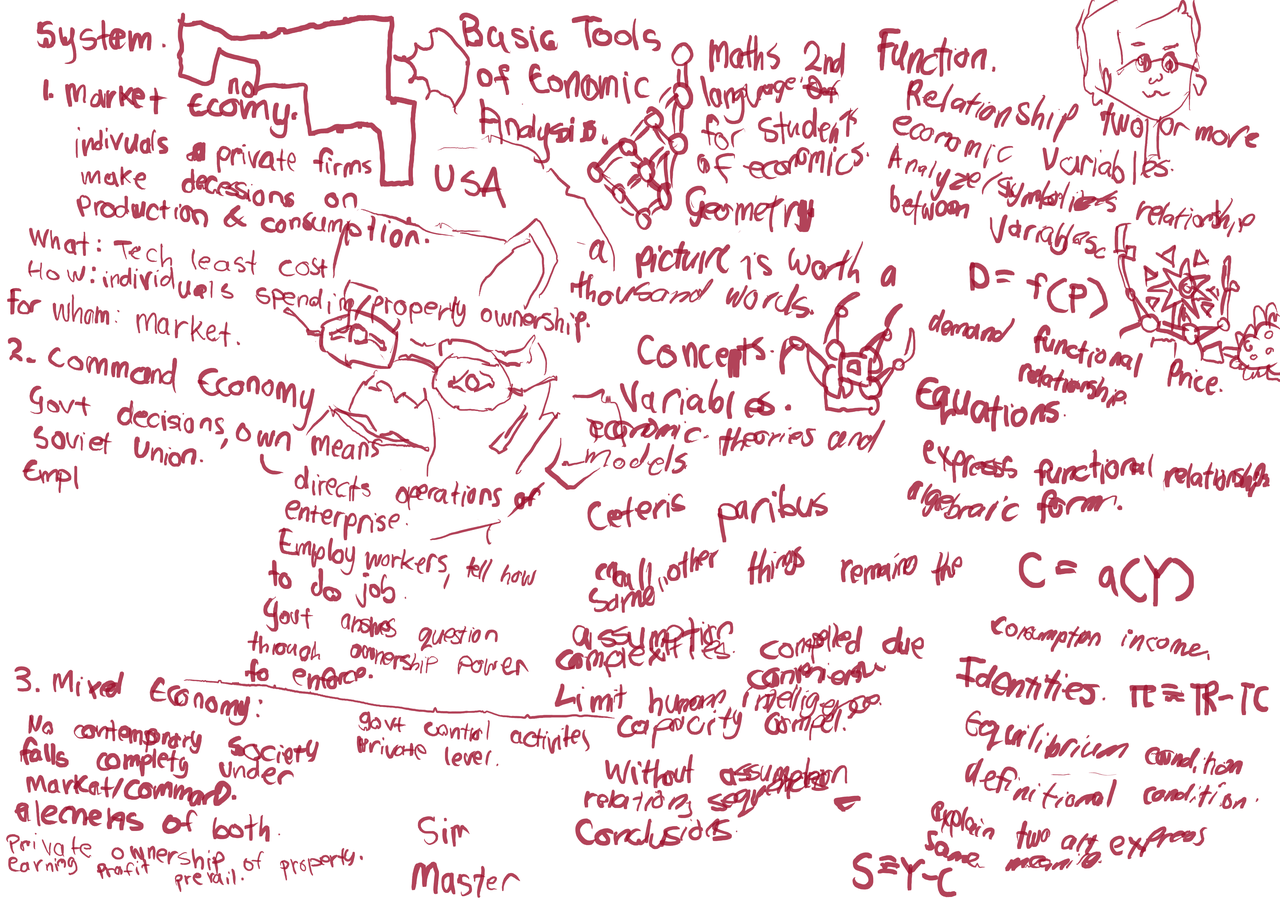 System.
no
1. Market Ecomy.
indivuals private firms
make decessions on
Production & consumption.
What: Tech least cost
How: individuals spending/property ownership.
for wham: market.
2. Command Economy
Govt decisions, own means
Soviet Union.
Empl
directs operations of
enterprise.
Employ workers, tell how
to do job.
Govt question
through ownership power
to enforce.
3. Mixed Economy:
No contemporary society
falls complety under
Market/Command.
alemens of both.
Private ownership of property.
earning profit prevail.
govt control activites
Private level.
Sim
Master
USA
Basic Tools
of Eonomic
Analysis.
Maths 2nd
language
for students
of economics.
Geometry
a picture is worth a
thousand words.
Concepts.
Variables.
economic theories and
models
Ceteris paribus
other things remains the
same
assumption
complexities. compelled due
Limit human intelligence.
capacity compel.
Without assumption
relations, sequences
Conclusions.
Function.
Relationship two or more
economic Variables.
Analyze/symbolises relationship
between Variables.
D = f(P)
demand functional Price.
relationship.
Equations.
express functional relationship
algebraic form.
C = a(Y)
consumption income,
Identities. π ≡ TR-TC
Equilibrium condition
definitional condition.
explain two alt express
same meaning.
S≡Y-C